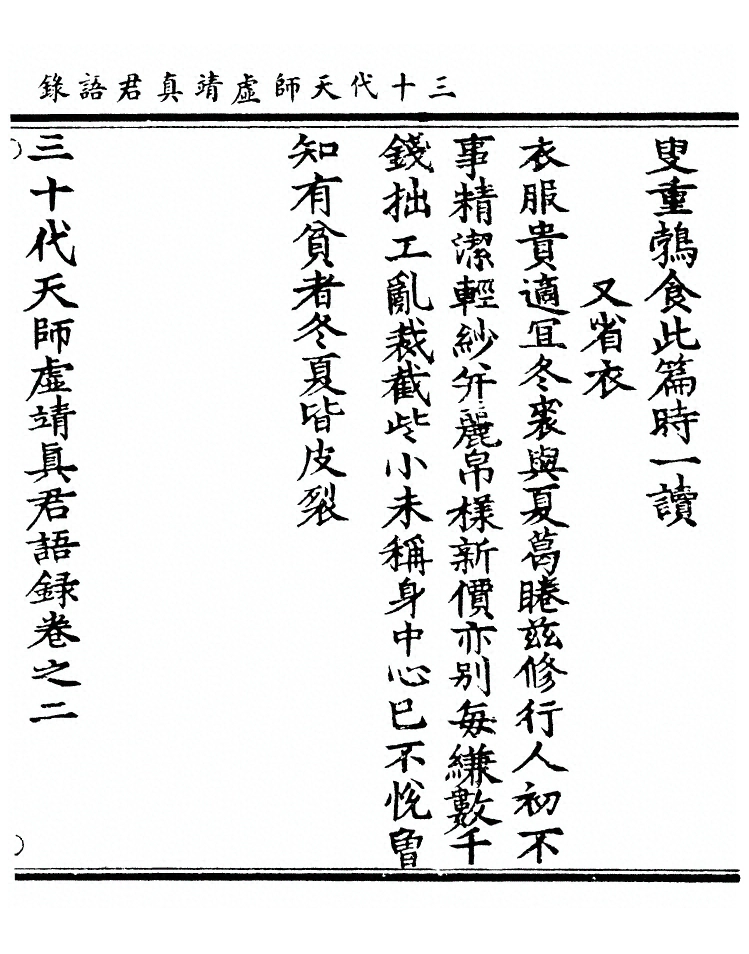 三十代天師虛靖真君語錄
叟重鵝食此篇時一讀
又省衣
衣服貴適宜冬裘與夏葛睠茲修行人初不
事精潔輕紗并麗帛樣新價亦別每縑數千
錢拙工亂裁截些小未稱身中心已不悅曾
知有貧者冬夏皆皮裂
三十代天師虛靖眞君語録卷之二